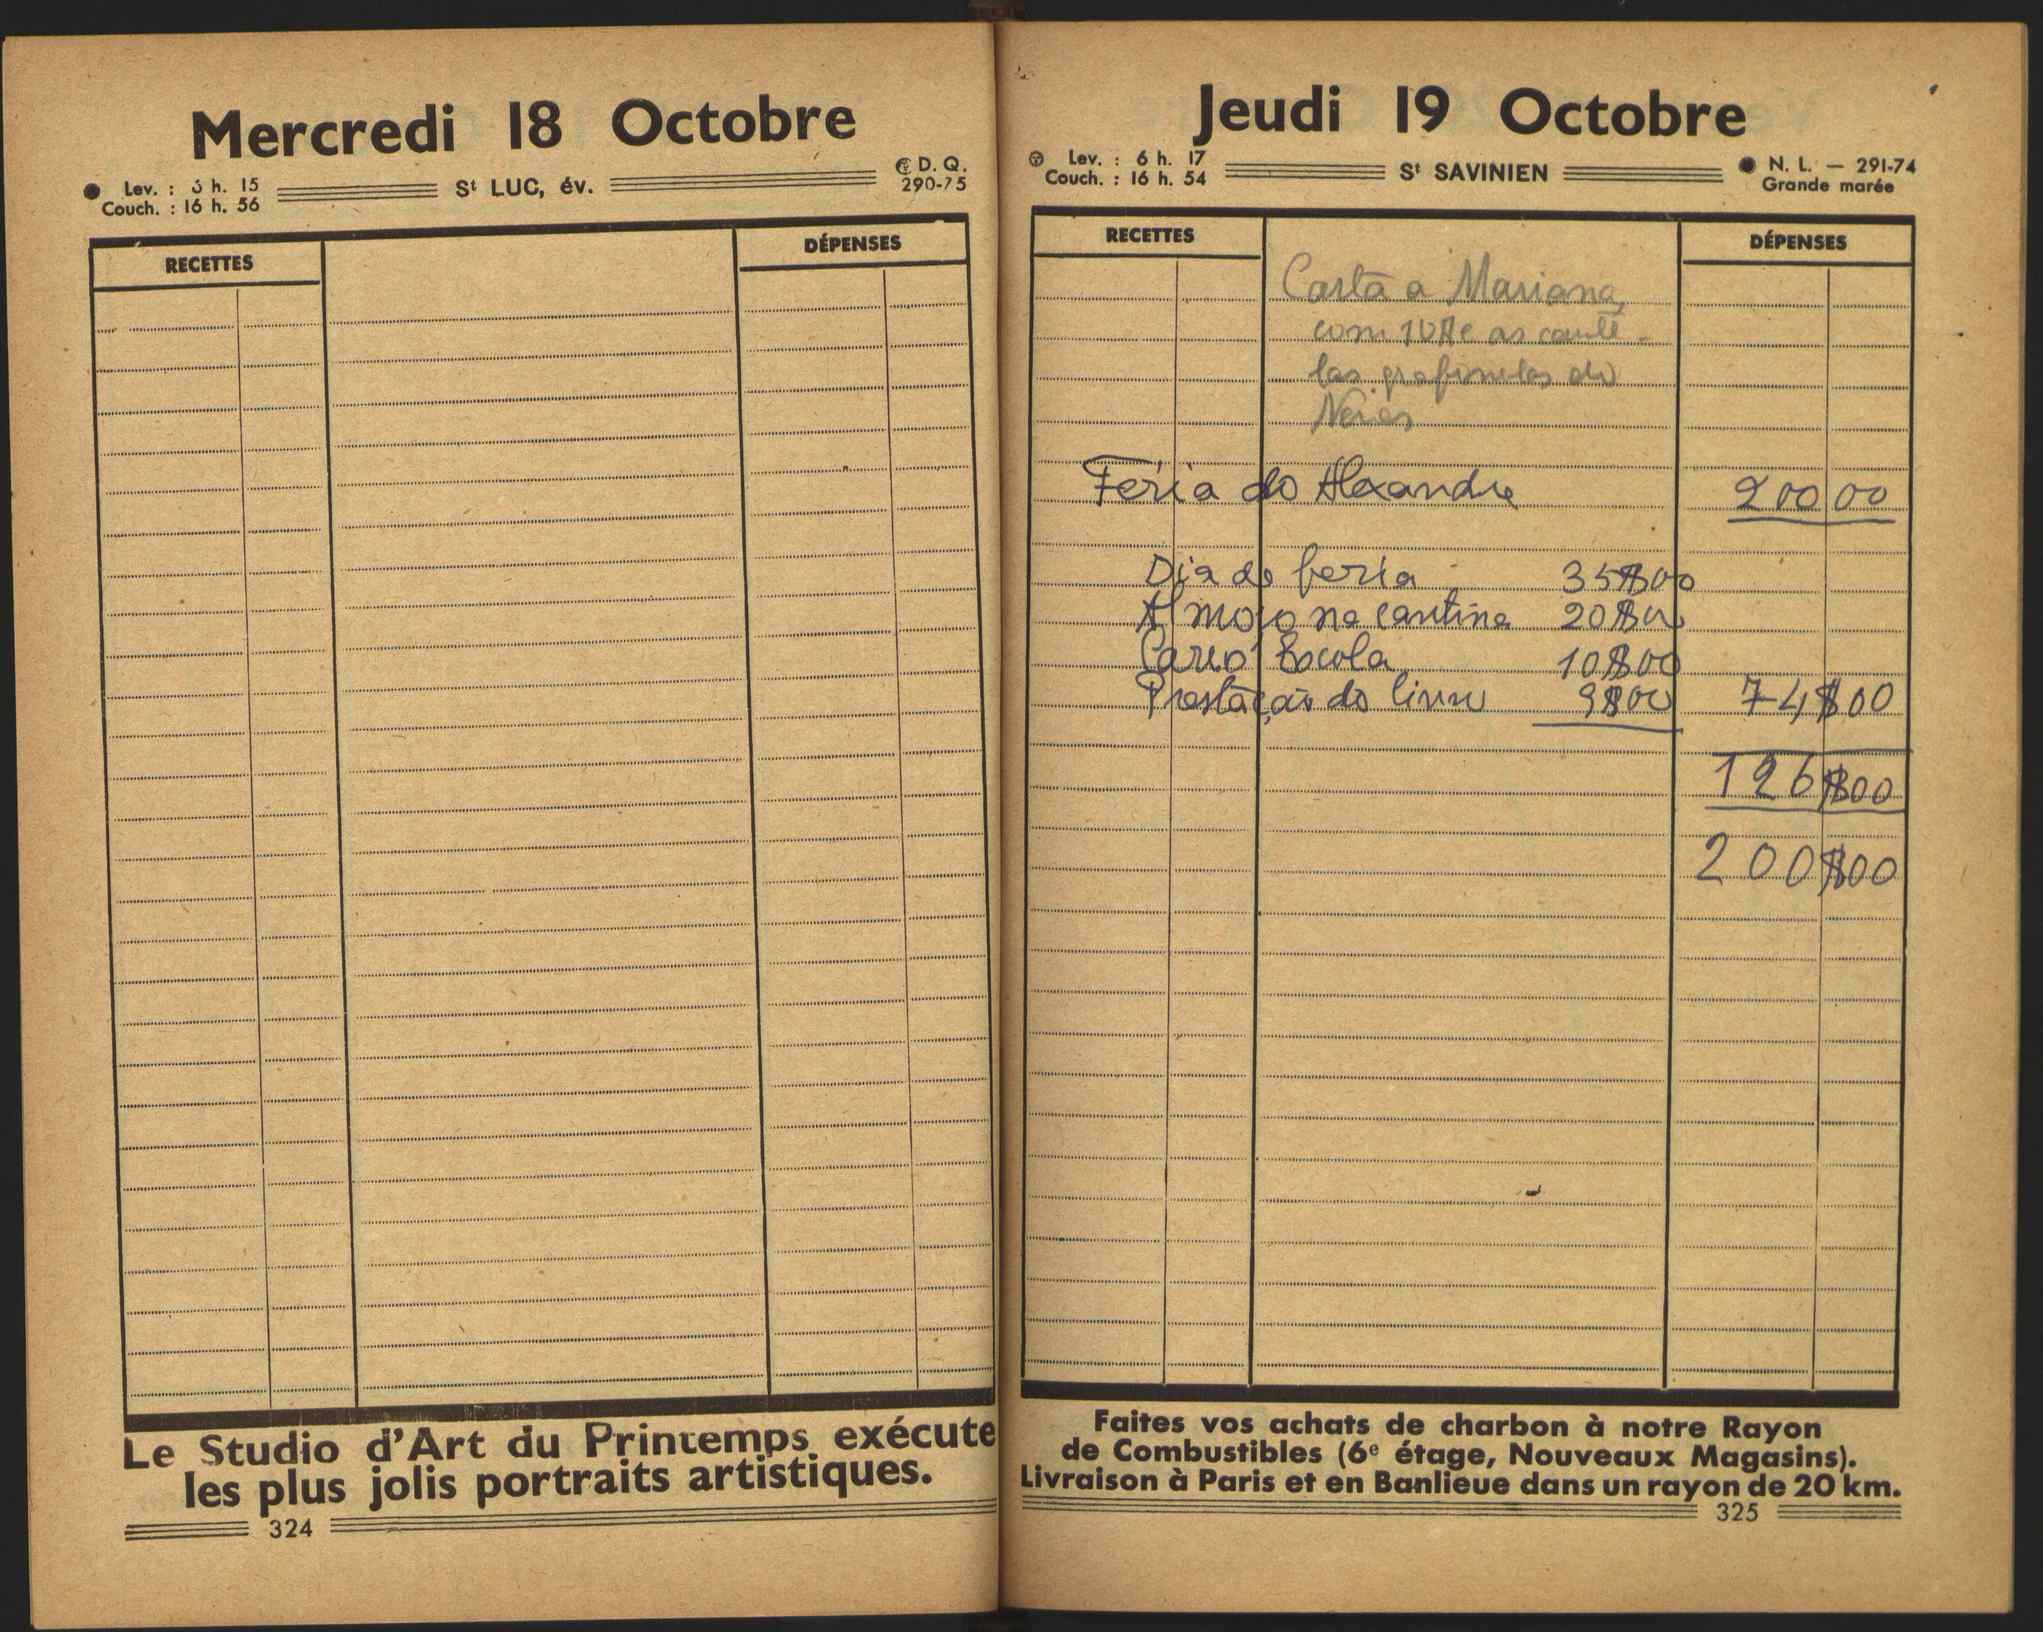 Mercredi 18 Octobre
Lev. : 6 h. 15
Couch. : 16 h. 56
St LUC, év.
D. Q.
290-75
RECETTES
DÉPENSES
Le Studio d'Art du Printemps exécute
les plus jolis portraits artistiques.
324
Jeudi 19 Octobre
Lev. : 6 h. 17
Couch. : 16 h. 54
St SAVINIEN
N. L. — 291-74
Grande marée
RECETTES
DÉPENSES
Carta a Mariana,
com as caute-
las do
Féria do Alexandre 200 00
Dia de feria 35$00
Almoço na cantina 20$00
Escola 10$00
Prestação do livro 9$00 74$00
126$00
200$00
Faites vos achats de charbon à notre Rayon
de Combustibles (6e étage, Nouveaux Magasins).
Livraison à Paris et en Banlieue dans un rayon de 20 km.
325